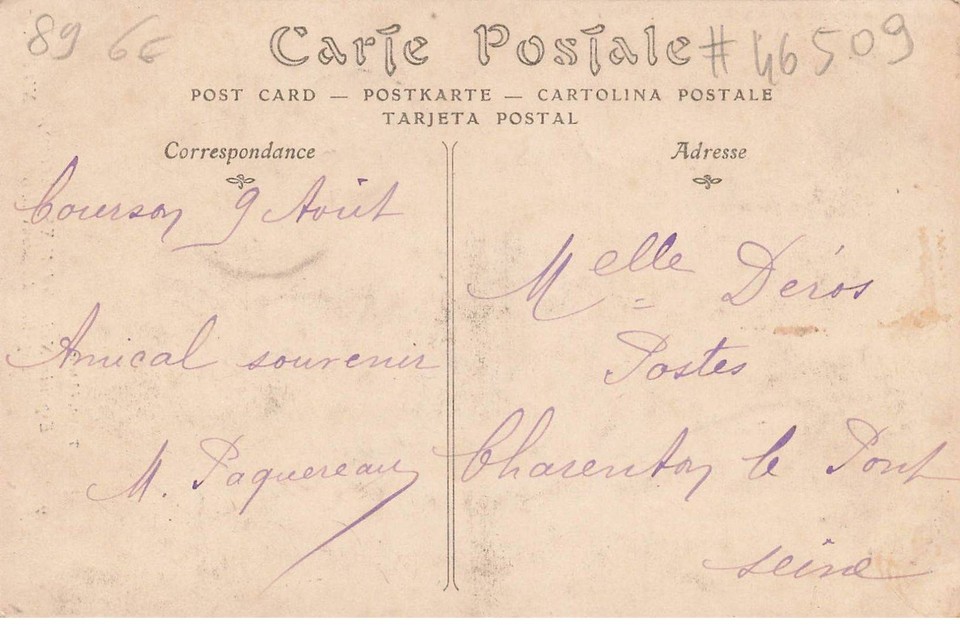 89 6€ Carte Postale #46509
POST CARD — POSTKARTE — CARTOLINA POSTALE
TARJETA POSTAL
Correspondance
Adresse
Courson 9 Août
Amical souvenir
M. Paquereau
Melle Déros
Postes
Charenton le Pont
seine